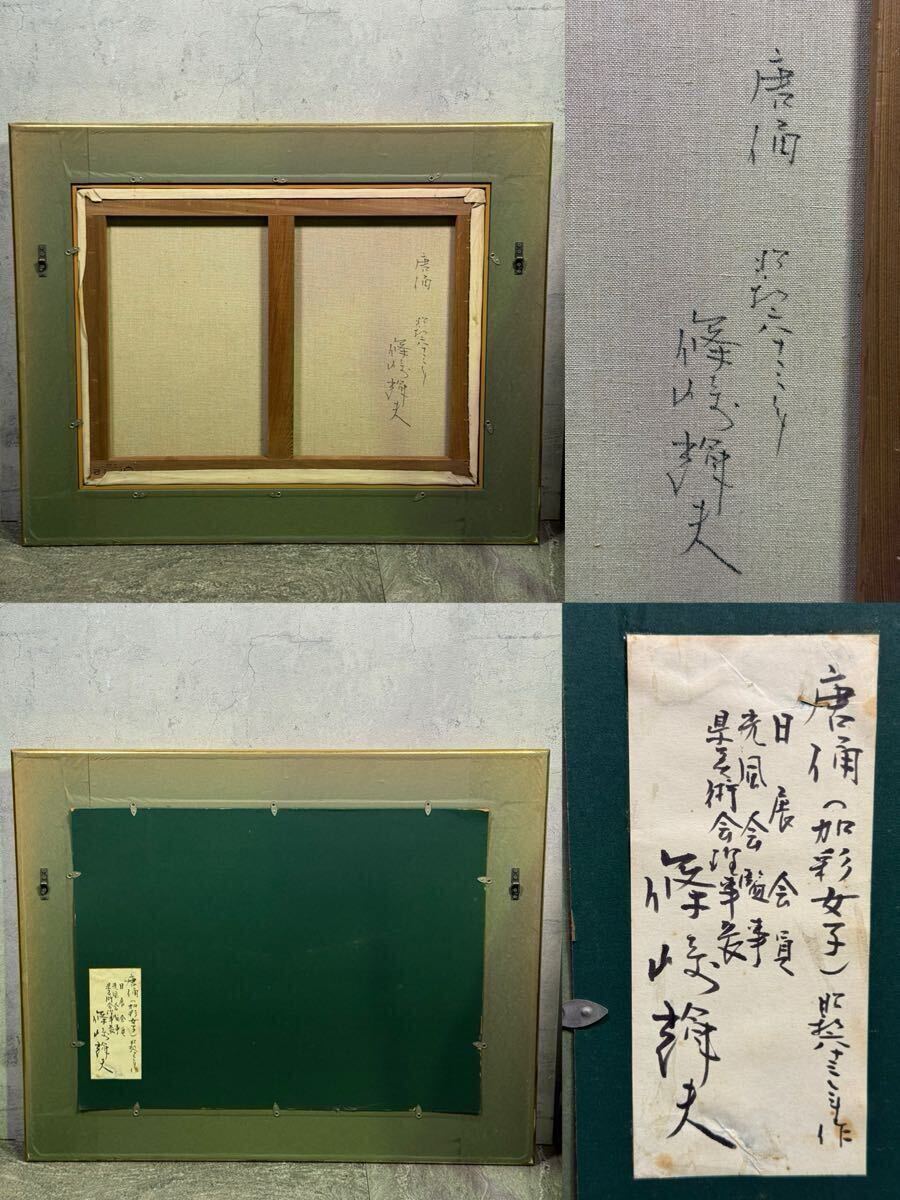 唐俑
昭和六十三年
篠崎輝夫
唐俑
昭和六十三年
篠崎輝夫
唐俑（加彩女子）昭和六十三年作
日展会員
光風会監事
県美術会理事長
篠崎輝夫
唐俑（加彩女子）昭和六十三年作
日展会員
光風会監事
県美術会理事長
篠崎輝夫